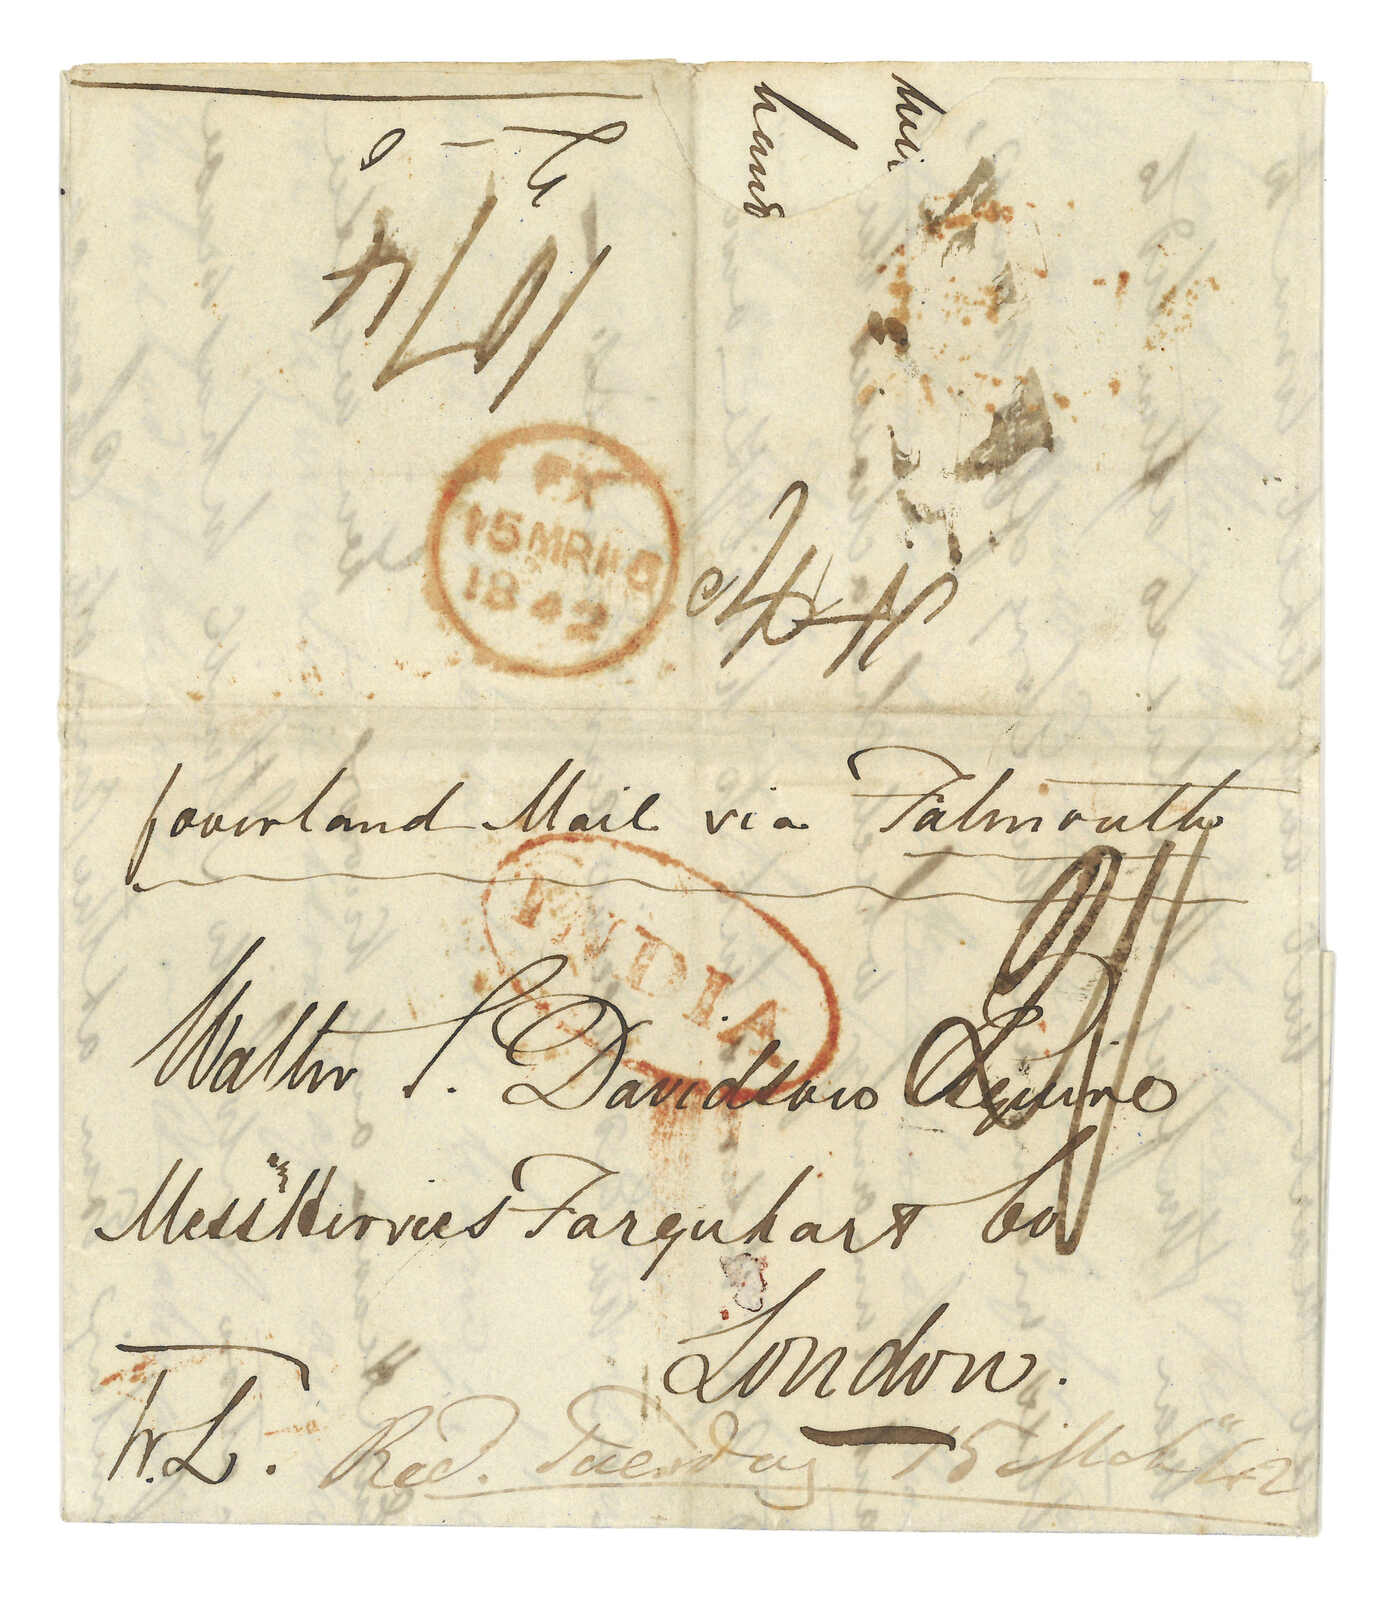 their
hand
2 - 0
1074
FX
15 MR 15
1842
p overland Mail via Falmouth
INDIA
Walter S. Davidson Esquire
Messrs Hervies Farquhar & Co
London.
W.L. Recd. Tuesday 15 Mch "42